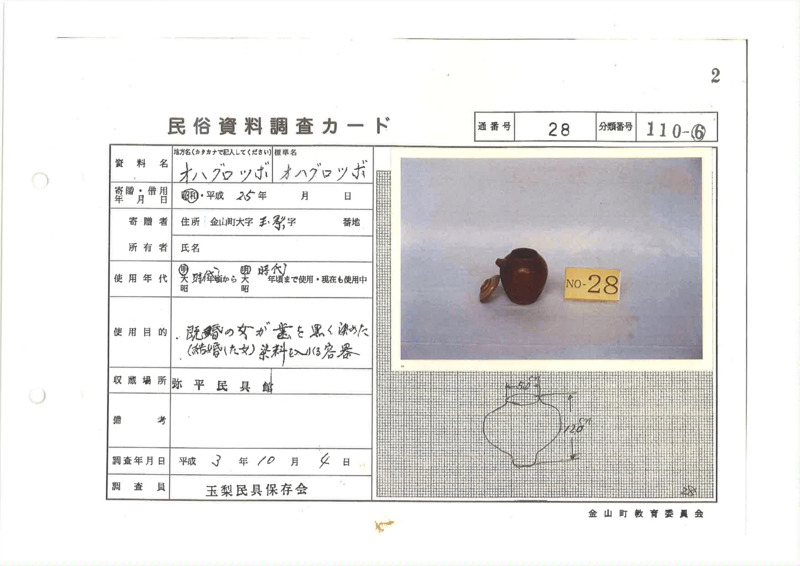 2
民俗資料調査カード
通番号 28 分類番号 110-⑥
資料名 地方名(カタカナで記入してください) オハグロツボ 標準名 オハグロツボ
寄贈・借用年月日 昭和・平成 25年 月 日
寄贈者 住所 金山町大字 玉梨 字 番地
所有者 氏名
使用年代 明・大・昭 時代 年頃から 明・大・昭 時代 年頃まで使用・現在も使用中
使用目的 既婚の女が歯を黒く染めた
(結婚した女)染料を入れる容器
収蔵場所 弥平民具館
備考
調査年月日 平成 3年 10月 4日
調査員 玉梨民具保存会
NO-28
5.0cm
12.0cm
28
金山町教育委員会